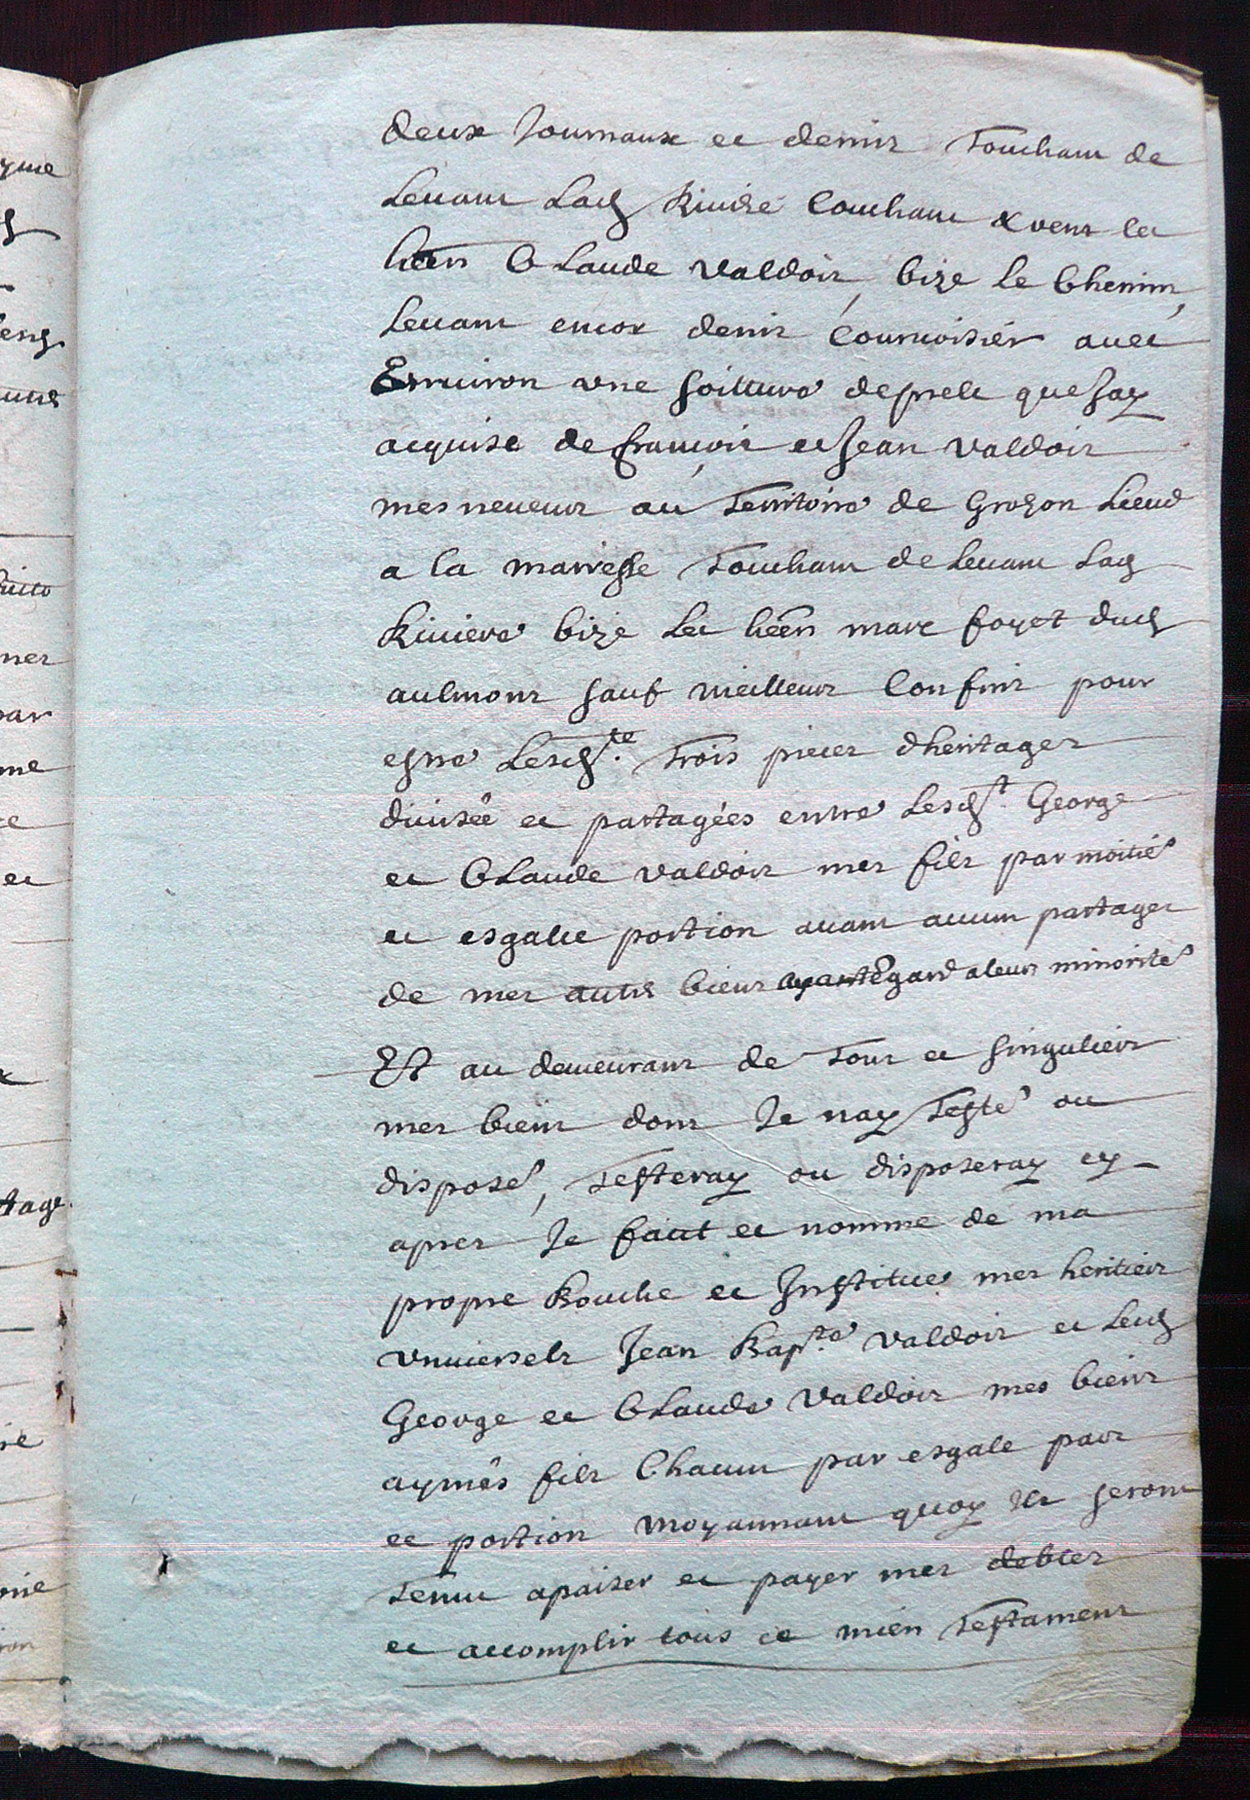 deux Journaux et demir Touchant de
Levant Lad Riviere Couchant & vent les
heers Claude Valdoir, bize le Chemin,
Levant encor denis Courvoisier avec
Environ une soitture de prelz que Jay
acquise de francois et Jean Valdoir
mes neveux au Territoire de Grozon Lieud
a la marresse Touchant de Levant Lad
Riviere bize Les heers marc foyet dud
aulmont sauf meilleurs Confins pour
estre Lesd.te Trois pieces dheritages
divisée et partagées entre Lesd.t George
et Claude Valdoir mes filz par moitié
et esgalle portion avant aucun partages
de mes autres biens ayant Egard a leurs minorité
Et au demeurant de Tous et singuliers
mes biens dont Je nay Testé ou
disposé, Testeray ou disposeray cy
apres Je faict et nomme de ma
propre Bouche et Institue mes heritiers
universels Jean Bap.te Valdoir et Lesd
George et Claude Valdoir mes biens
aymés filz Chacun par esgale part
et portion moyannant quoy Ilz seront
Tenu apaiser et payer mes debtes
et accomplir tous ce mien Testament